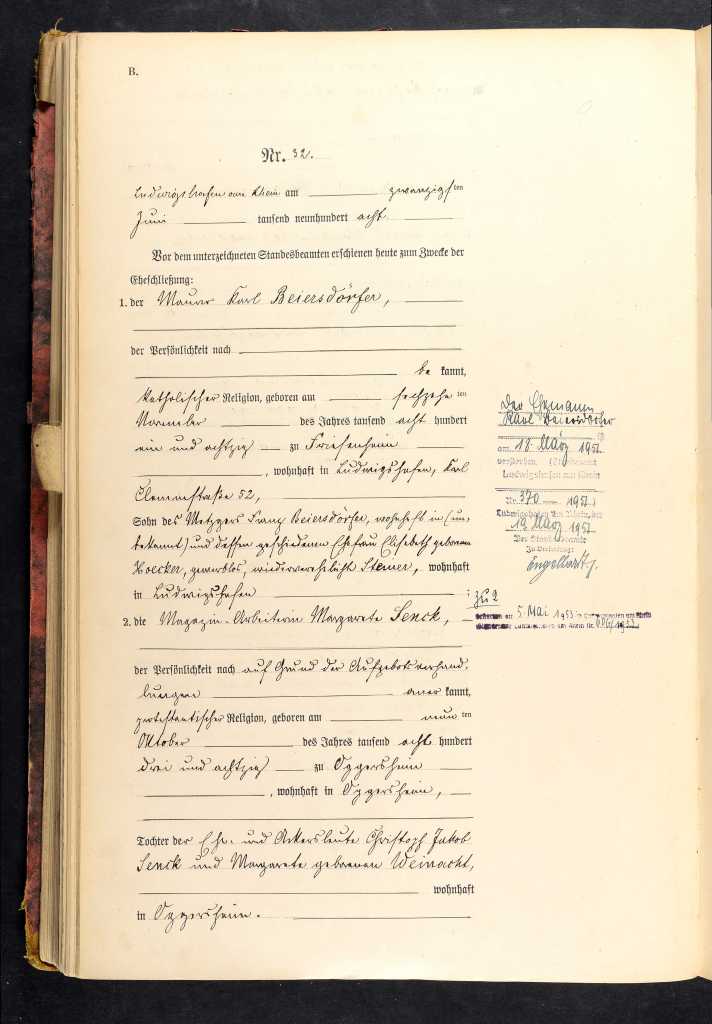 B.
Nr. 32.
Ludwigshafen am Rhein am zwanzigsten
Juni tausend neunhundert acht
Vor dem unterzeichneten Standesbeamten erschienen heute zum Zwecke der
Eheschließung:
1. der Maurer Karl Beiersdörfer,
der Persönlichkeit nach
be kannt,
katholischer Religion, geboren am sechzehnten
November des Jahres tausend acht hundert
ein und achtzig zu Friesenheim
, wohnhaft in Ludwigshafen, Karl
Clemmstraße 52,
Sohn des Metzgers Franz Beiersdörfer, wohnhaft in (un-
bekannt) und dessen geschiedenen Ehefrau Elisabeth geborenen
Hoecker, gewerblos, wiederverehelicht, wohnhaft
in Ludwigshafen
2. die Magazin-Arbeiterin Margarete Senck,
der Persönlichkeit nach auf Grund der Aufgebotsverhand-
lungen aner kannt,
protestantischer Religion, geboren am neunten
Oktober des Jahres tausend acht hundert
drei und achtzig zu Oggersheim
, wohnhaft in Oggersheim,
Tochter der Ehe- und Ackersleute Christoph Jakob
Senck und Margarete geborenen Weinacht,
wohnhaft
in Oggersheim.
Der Ehemann
Karl Beiersdörfer
am 18. März 1952
verstorben. Standesamt
Ludwigshafen am Rhein
Nr. 370 1952
Ludwigshafen am Rhein, den
19. März 1952
Der Standesbeamte
In Vertretung:
zu 2
5. Mai 1953